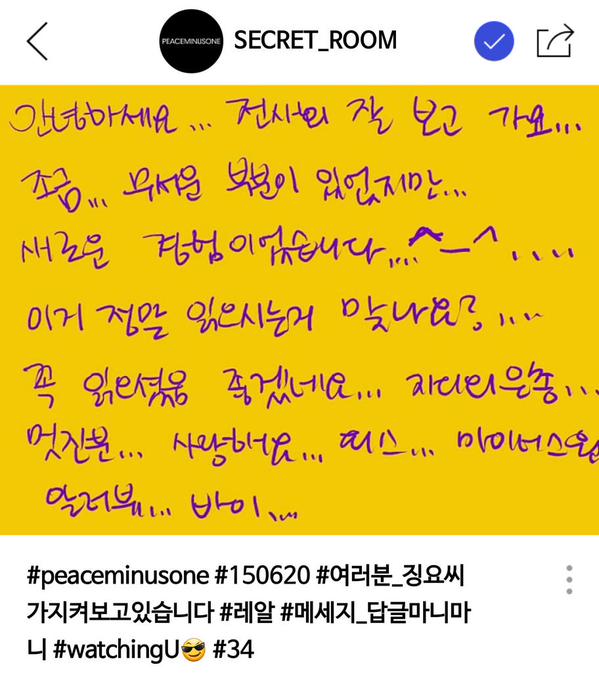 PEACEMINUSONE SECRET_ROOM
안녕하세요... 전시회 잘 보고 가요...
조금... 무서운 부분이 있었지만...
새로운 경험이었습니다....^_^....
이거 정말 읽으시는거 맞나요?....
꼭 읽으셨음 좋겠네요... 지디리은송...
멋진분... 사랑해요... 피스... 마이너스원
알러뷰... 바이....
#peaceminusone #150620 #여러분_징요씨
가지켜보고있습니다 #레알 #메세지_답글마니마
니 #watchingU😎 #34